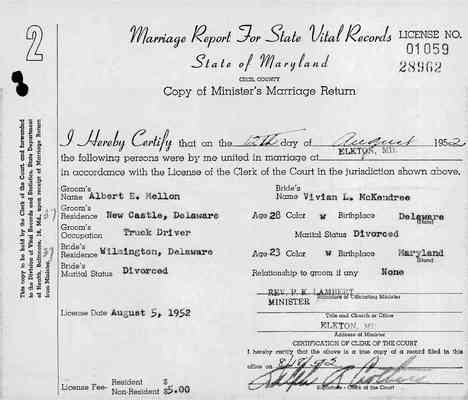 2
Marriage Report For State Vital Records
LICENSE NO.
01059
28962
State of Maryland
CECIL COUNTY
Copy of Minister's Marriage Return
This copy to be held by the Clerk of the Court, and forwarded
to the Division of Vital Records and Statistics, State Department
of Health, Baltimore, 18, Md., upon receipt of Marriage Return
from Minister.
I Hereby Certify that on the day of August 1952
the following persons were by me united in marriage at ELKTON, MD.
in accordance with the License of the Clerk of the Court in the jurisdiction shown above.
Groom's
Name Albert E. Mellon
Bride's
Name Vivian L. McKendree
Groom's
Residence New Castle, Delaware
Age 28 Color w Birthplace Delaware
Groom's
Occupation Truck Driver
Marital Status Divorced
Bride's
Residence Wilmington, Delaware
Age 23 Color w Birthplace Maryland
Bride's
Marital Status Divorced
Relationship to groom if any None
REV. P. K. LAMBERT
MINISTER Signature of Officiating Minister
Title and Church or Office
License Date August 5, 1952
ELKTON, MD.
Address of Minister
CERTIFICATION OF CLERK OF THE COURT
I hereby certify that the above is a true copy of a record filed in this
office on
Signature - Clerk of the Court
License Fee- Resident $
Non-Resident $5.00